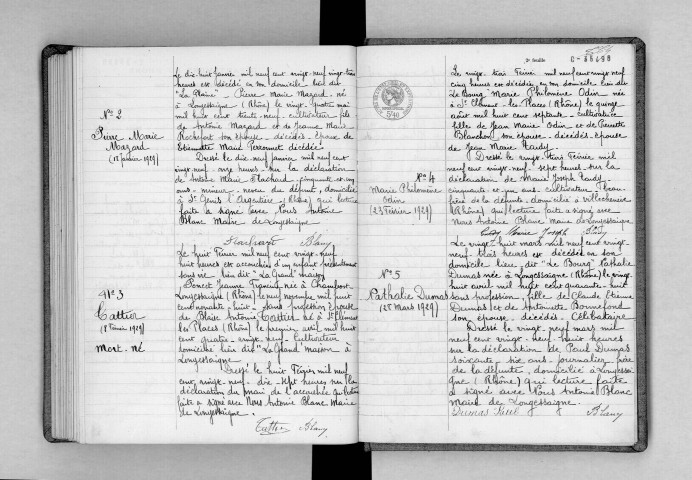 Nº 2
Pierre Marie
Mazard
(18 janvier 1929)
Le dix-huit janvier mil neuf cent vingt-neuf vingt-trois
heures est décédé en son domicile lieu dit
"La Raine" Pierre Marie Mazard né
à Longessaigne (Rhône) le vingt-quatre mai
mil huit cent trente-neuf, cultivateur fils
de Antoine Mazard et de Jeanne Marie
Rochefort son épouse, décédés, époux de
Etiennette Marie Perronnet décédée
Dressé le dix-neuf janvier mil neuf cent
vingt-neuf onze heures sur la déclaration
de Antoine Marie Flachard cinquante et un
ans mineur neveu du défunt, domicilié
à St Genis l'Argentière (Rhône) qui lecture
faite a signé avec Nous Antoine
Blanc Maire de Longessaigne
Blanc
Nº 3
Tattier
(8 Février 1929)
Mort-né
Le huit Février mil neuf cent vingt-neuf
huit heures est accouchée d'un enfant présentement
sans vie lieu dit "La Grand'maison"
Jeanne née à Chambost
Longessaigne (Rhône) le neuf novembre mil huit
cent nonante-huit, sans profession épouse
de Blaise Antoine Tattier né à St Clément
les Places (Rhône) le premier avril mil huit
cent quatre-vingt-neuf Cultivateur
domiciliés lieu dit "La Grand'Maison" à
Longessaigne
Dressé le huit Février mil neuf
cent vingt-neuf dix-sept heures sur la
déclaration du mari de l'accouchée qui lecture
faite a signé avec Nous Antoine Blanc Maire
de Longessaigne.
Tattier Blanc
2e feuille
Nº 4
Marie Philomène
Odin
(23 Février 1929)
Le vingt-trois Février mil neuf cent vingt-neuf
cinq heures est décédée en son domicile lieu dit
Le Bourg Marie Philomène Odin née
à St Clément-les-Places (Rhône) le quinze
août mil huit cent septante, cultivatrice
fille de Jean Marie Odin et de Pierrette
Blanchon son épouse, décédés, épouse
de Jean Marie Tardy.
Dressé le vingt-trois Février mil
neuf cent vingt-neuf sept heures sur la
déclaration de Marie Joseph Tardy
cinquante et un ans cultivateur beau-
frère de la défunte domicilié à Villechenève
(Rhône) qui lecture faite a signé avec
Nous Antoine Blanc maire de Longessaigne
Tardy Marie Joseph Blanc
Nº 5
Nathalie Dumas
(28 Mars 1929)
Le vingt-huit mars mil neuf cent vingt-neuf
trois heures est décédée en son
domicile lieu dit "Le Bourg" Nathalie
Dumas née à Longessaigne (Rhône) le vingt-
huit avril mil huit cent quarante-huit
sans profession, fille de Claude Etienne
Dumas et de Antoinette Bonnefond
son épouse, décédés. Célibataire
Dressé le vingt-neuf mars mil
neuf cent vingt-neuf huit heures
sur la déclaration de Paul Dumas
soixante-six ans journalier, frère
de la défunte, domicilié à Longessai
gne (Rhône) qui lecture faite
a signé avec Nous Antoine Blanc
Maire de Longessaigne.
Dumas Paul Blanc